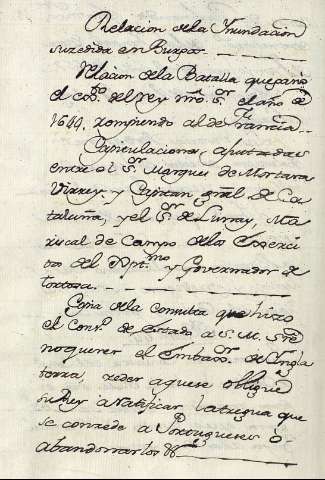 Relacion de la Inundacion
suzedida en Burgos.
Relacion de la Batalla que ganò
el del Rey nro. Sr. el año de
1644. rompiendo al de Francia.
Capitulaciones ajustadas
entre el Sor. Marques de Mortara
Virrey y Capitan gral. de Ca-
taluña, y el Sor. de Ma-
riscal de Campo de los Exerci-
tos del y Governador de
tortosa.
Copia de la consulta que hizo
el Cons.o de Estado a S. M. sre.
no querer el Embaxor. de Ingla
terra, zeder a que se obligue
su Rey a ratificar la tregua que
se conzede a Portugueses ò
abandonarlos &